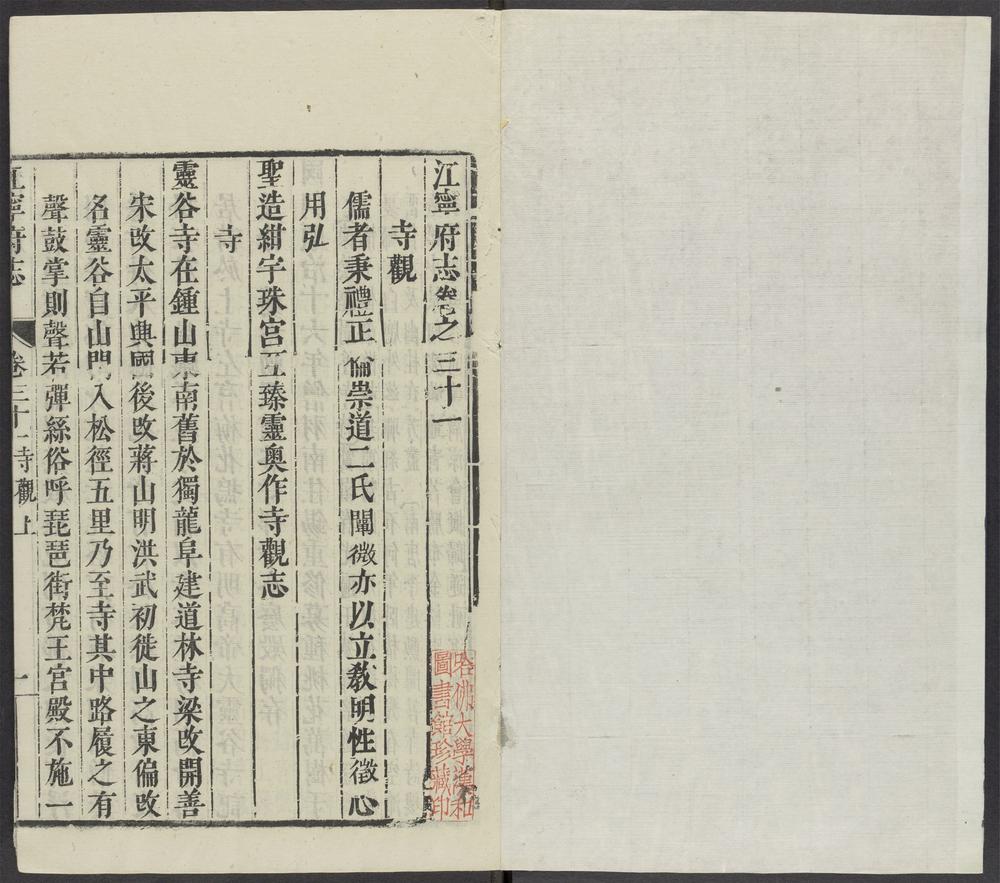 江寧府志卷之三十一
寺觀
儒者秉禮正倫崇道二氏闡微亦以立敎明性徵心
用弘
聖造紺宇珠宮互臻靈奧作寺觀志
寺
靈谷寺在鍾山東南舊於獨龍阜建道林寺梁改開善
宋改太平興國後改蔣山明洪武初徙山之東偏改
名靈谷自山門入松徑五里乃至寺其中路履之有
聲鼓掌則聲若彈絲俗呼琵琶街梵王宮殿不施一
江寧府志
卷三十一寺觀上
一
哈佛大學漢和
圖書館珍藏印